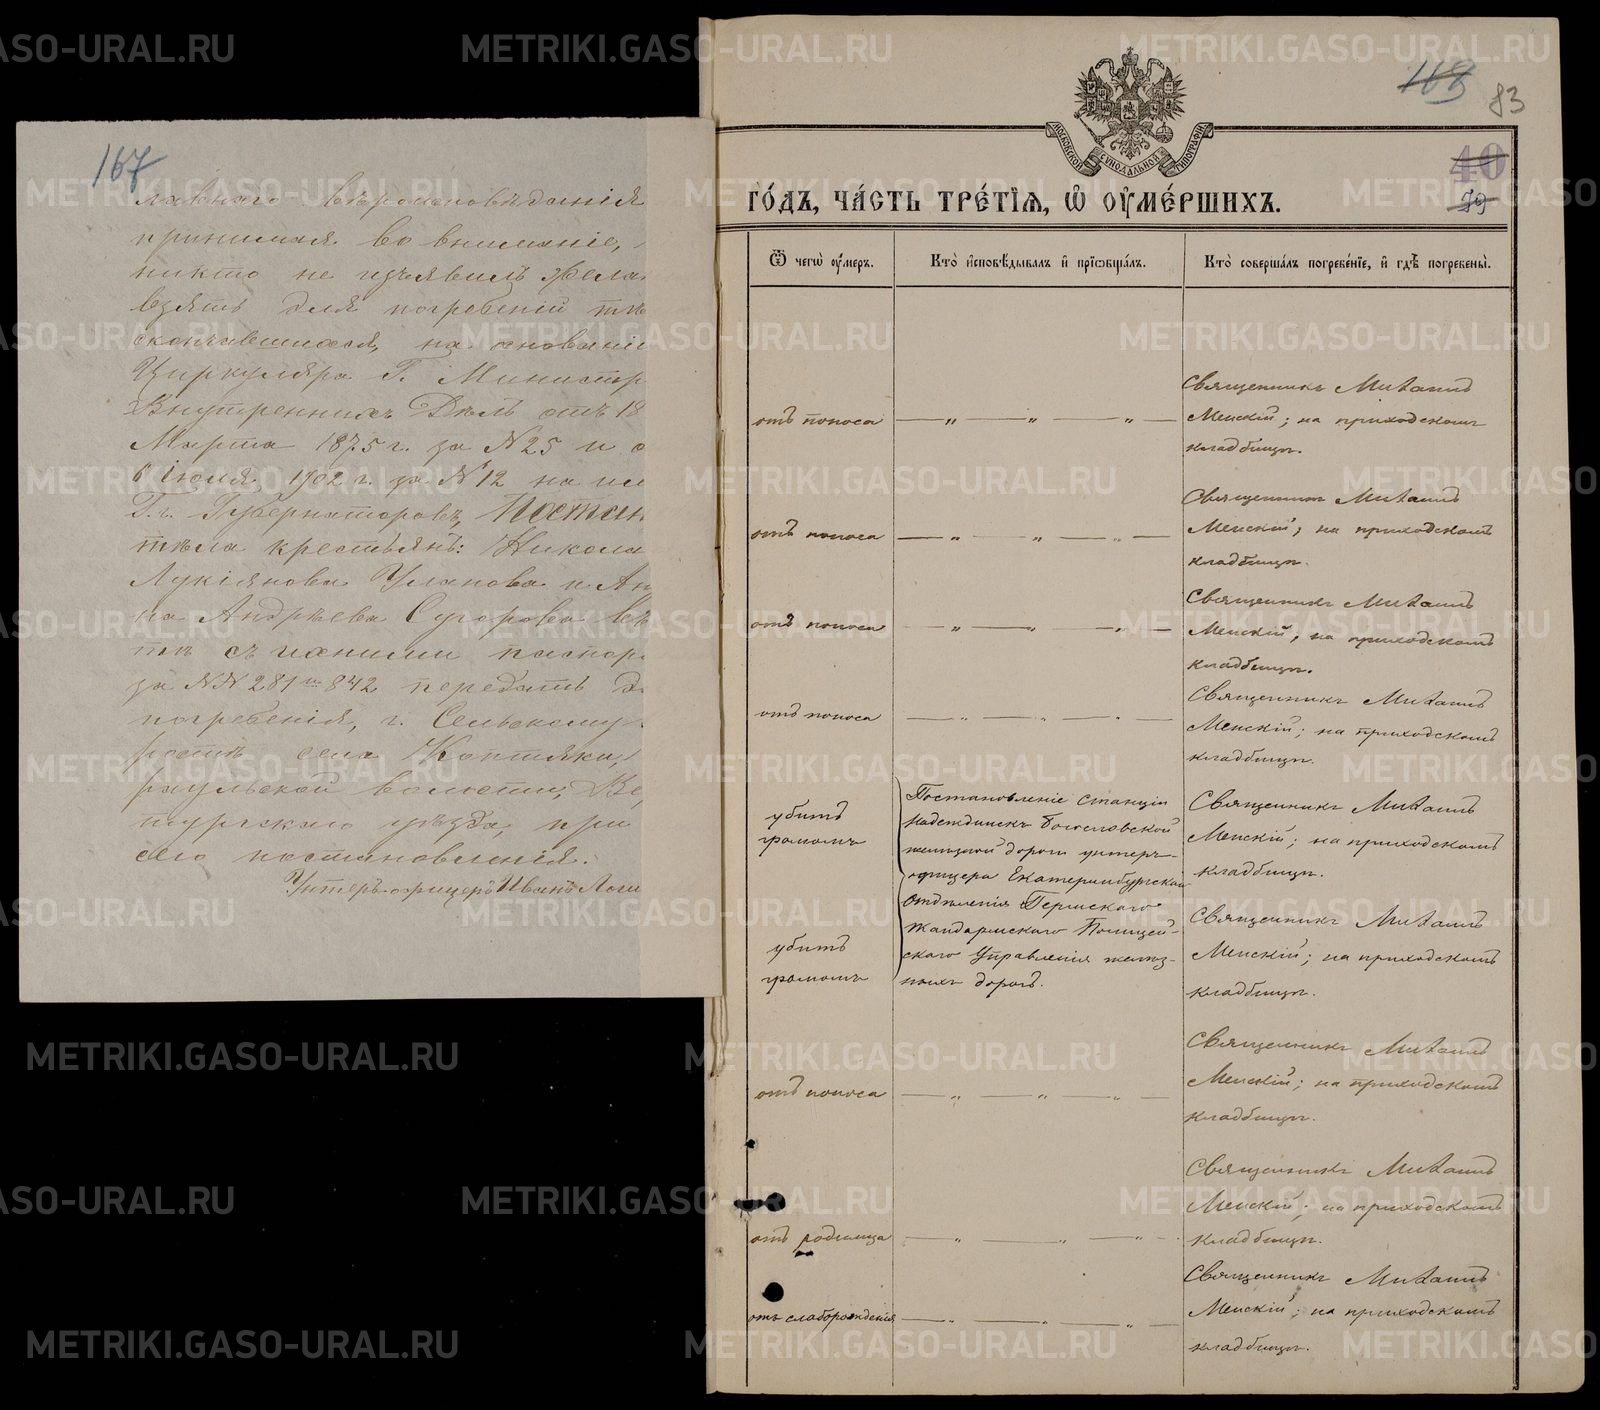 167
лавнаго вѣроисповѣданія
принимая во вниманіе,
никто не изъявилъ жела
взять для погребеній тѣ
скончавшихся, на основаніи
Циркуляра Г. Министр
Внутреннихъ Дѣлъ отъ 18
Марта 1875 г. за N 25 и о
6 Іюля 1902 г. за N 12 на им
Г.г. Губернаторовъ, Постан
тѣла крестьянъ: Никола
Лукіянова Уланова и Ан
на Андрѣева Сугорова вмѣ
тѣ съ ихними паспор
за NN 281 и 842 передать д
погребенія, г. Сельскому
ростѣ села Коптяки,
раульской волости, Ве
турскаго уѣзда, при
сего постановленія.
Унтеръ-офицеръ Иванъ Логи
168
83
40
79
МОСКОВСКОЙ СѴНОДАЛЬНОЙ ТИПОГРАФІИ
ГО́ДЪ, ЧА́СТЬ ТРЕ́ТІѦ, Ѡ҆ ОУ҆МЕ́РШИХЪ.
Ѿ чегѡ̀ оу҆́меръ.
Кто̀ и҆сповѣ́дывалъ и҆ прїѡбща́лъ.
Кто̀ соверша́лъ погребе́нїе, и҆ гдѣ̀ погребены̀.
отъ поноса — „ — „ — „ —
Священникъ Михаилъ
Менскій; на приходскомъ
кладбищѣ.
отъ поноса — „ — „ — „ —
Священникъ Михаилъ
Менскій; на приходскомъ
кладбищѣ.
отъ поноса — „ — „ — „ —
Священникъ Михаилъ
Менскій; на приходскомъ
кладбищѣ.
отъ поноса — „ — „ — „ —
Священникъ Михаилъ
Менскій; на приходскомъ
кладбищѣ.
убитъ
громомъ
Постановленіе станціи
Надеждинскъ Богословской
желѣзной дороги унтеръ-
офицера Екатеринбургскаго
отдѣленія Пермскаго
Жандармскаго Полицей-
скаго Управленія желѣз-
ныхъ дорогъ.
Священникъ Михаилъ
Менскій; на приходскомъ
кладбищѣ.
убитъ
громомъ
Священникъ Михаилъ
Менскій; на приходскомъ
кладбищѣ.
отъ поноса — „ — „ — „ —
Священникъ Михаилъ
Менскій; на приходскомъ
кладбищѣ.
отъ родимца — „ — „ — „ —
Священникъ Михаилъ
Менскій; на приходскомъ
кладбищѣ.
отъ слаборожденія — „ — „ — „ —
Священникъ Михаилъ
Менскій; на приходскомъ
кладбищѣ.
METRIKI.GASO-URAL.RU